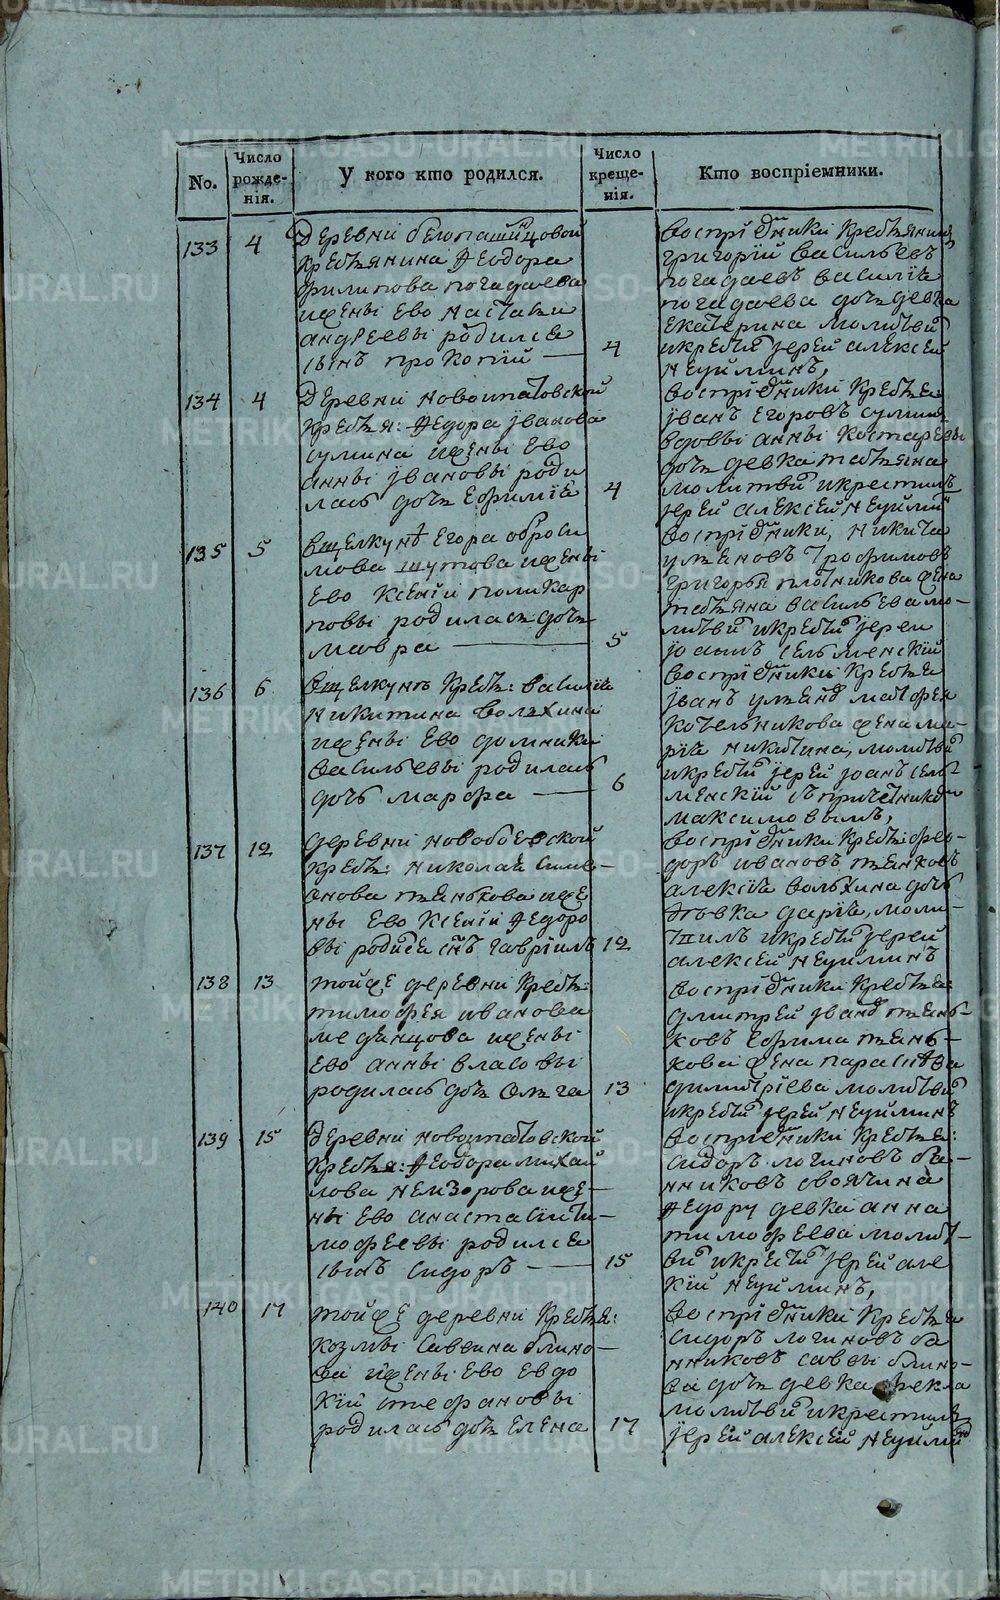 No.
Число рожде-
нія.
У кого кто родился.
Число креще-
нія.
Кто воспріемники.
133 4
Деревни белопашинцовой
крестьянина Феодора
филипова погадаева
жены ево настаси
андреевы родился
сынъ прокопий — 4
воспрїемники крестьянинъ
григорїй васильевъ
погадаевъ василїа
погадаева дочь девка
екатерина молитви
икрести їерей алексей
неуйминъ,
134 4
Деревни новоипатовской
крестья: Федора јванова
сумина жены ево
анны јвановы роди
лась дочь ефимїа 4
воспрїемники крестья:
јванъ егоровъ суминъ
вдовы анны костаревы
дочь девка татьяна
молитви икрестилъ
їерей алексїй неуймин
135 5
вщелкунѣ егора
мова шутова жены
ево ксенїи поликар
повы родилась дочь
мавра — 5
воспрїемники, никита
ульяновъ трофимовъ
григорья плотникова жена
татьяна васильева мо-
литви икрести їереи
їоаннъ сельменскїй
136 6
вщелкунѣ крест: василїа
никитина
жены ево домники
васильевы родилась
дочь марфа — 6
воспрїемники крестья
јванъ ульянов матфея
котельникова жена ма-
рїа никитина, молитви
икрести їерей їоаннъ сель-
менскїй съ причетником
максимовымъ,
137 12
деревни новобоевской
крест: николая симе-
онова пьянкова же
ны ево ксенїи Федоро
вы родися снъ гаврїилъ 12
воспрїемники крест: фео-
доръ ивановъ пьянковъ
алексїа дочь
девка дарїа, моли-
тилъ икрести їерей
алексей неуйминъ
138 13
тойже деревни крест:
тимофея иванова
медянцова жены
ево анны власовы
родилась дочь ольга 13
воспрїемники крестья:
дмитрей јванов пьянь-
ковъ ефима пьянь-
кова жена парасковья
димитрїева молитви
икрести їерей неуйминъ
139 15
Деревни новоипатовской
крестья: Феодора михай
лова неизорова же-
ны ево анастасїи ти-
мофеевы родился
сынъ сидоръ — 15
воспрїемники крестья:
сидоръ логиновъ ба-
нниковъ своячина
Федору девка анна
тимофеева молит-
ви икрести їерей але
кїй неуйминъ,
140 17
тойже деревни крестья:
козмы саввина блино-
ва жены ево евдо
кїи стефановы
родилась дочь елена 17
воспрїемники крестья
сидоръ логиновъ ба
нниковъ саввы блино-
ва дочь девка фекла
молитви икрестилъ
їерей алексїй неуймин